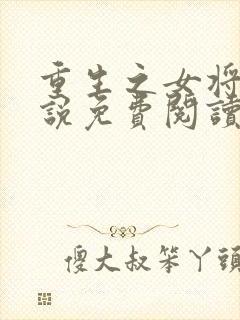 重生之女将
說免費閱讀
傻大叔笨丫頭